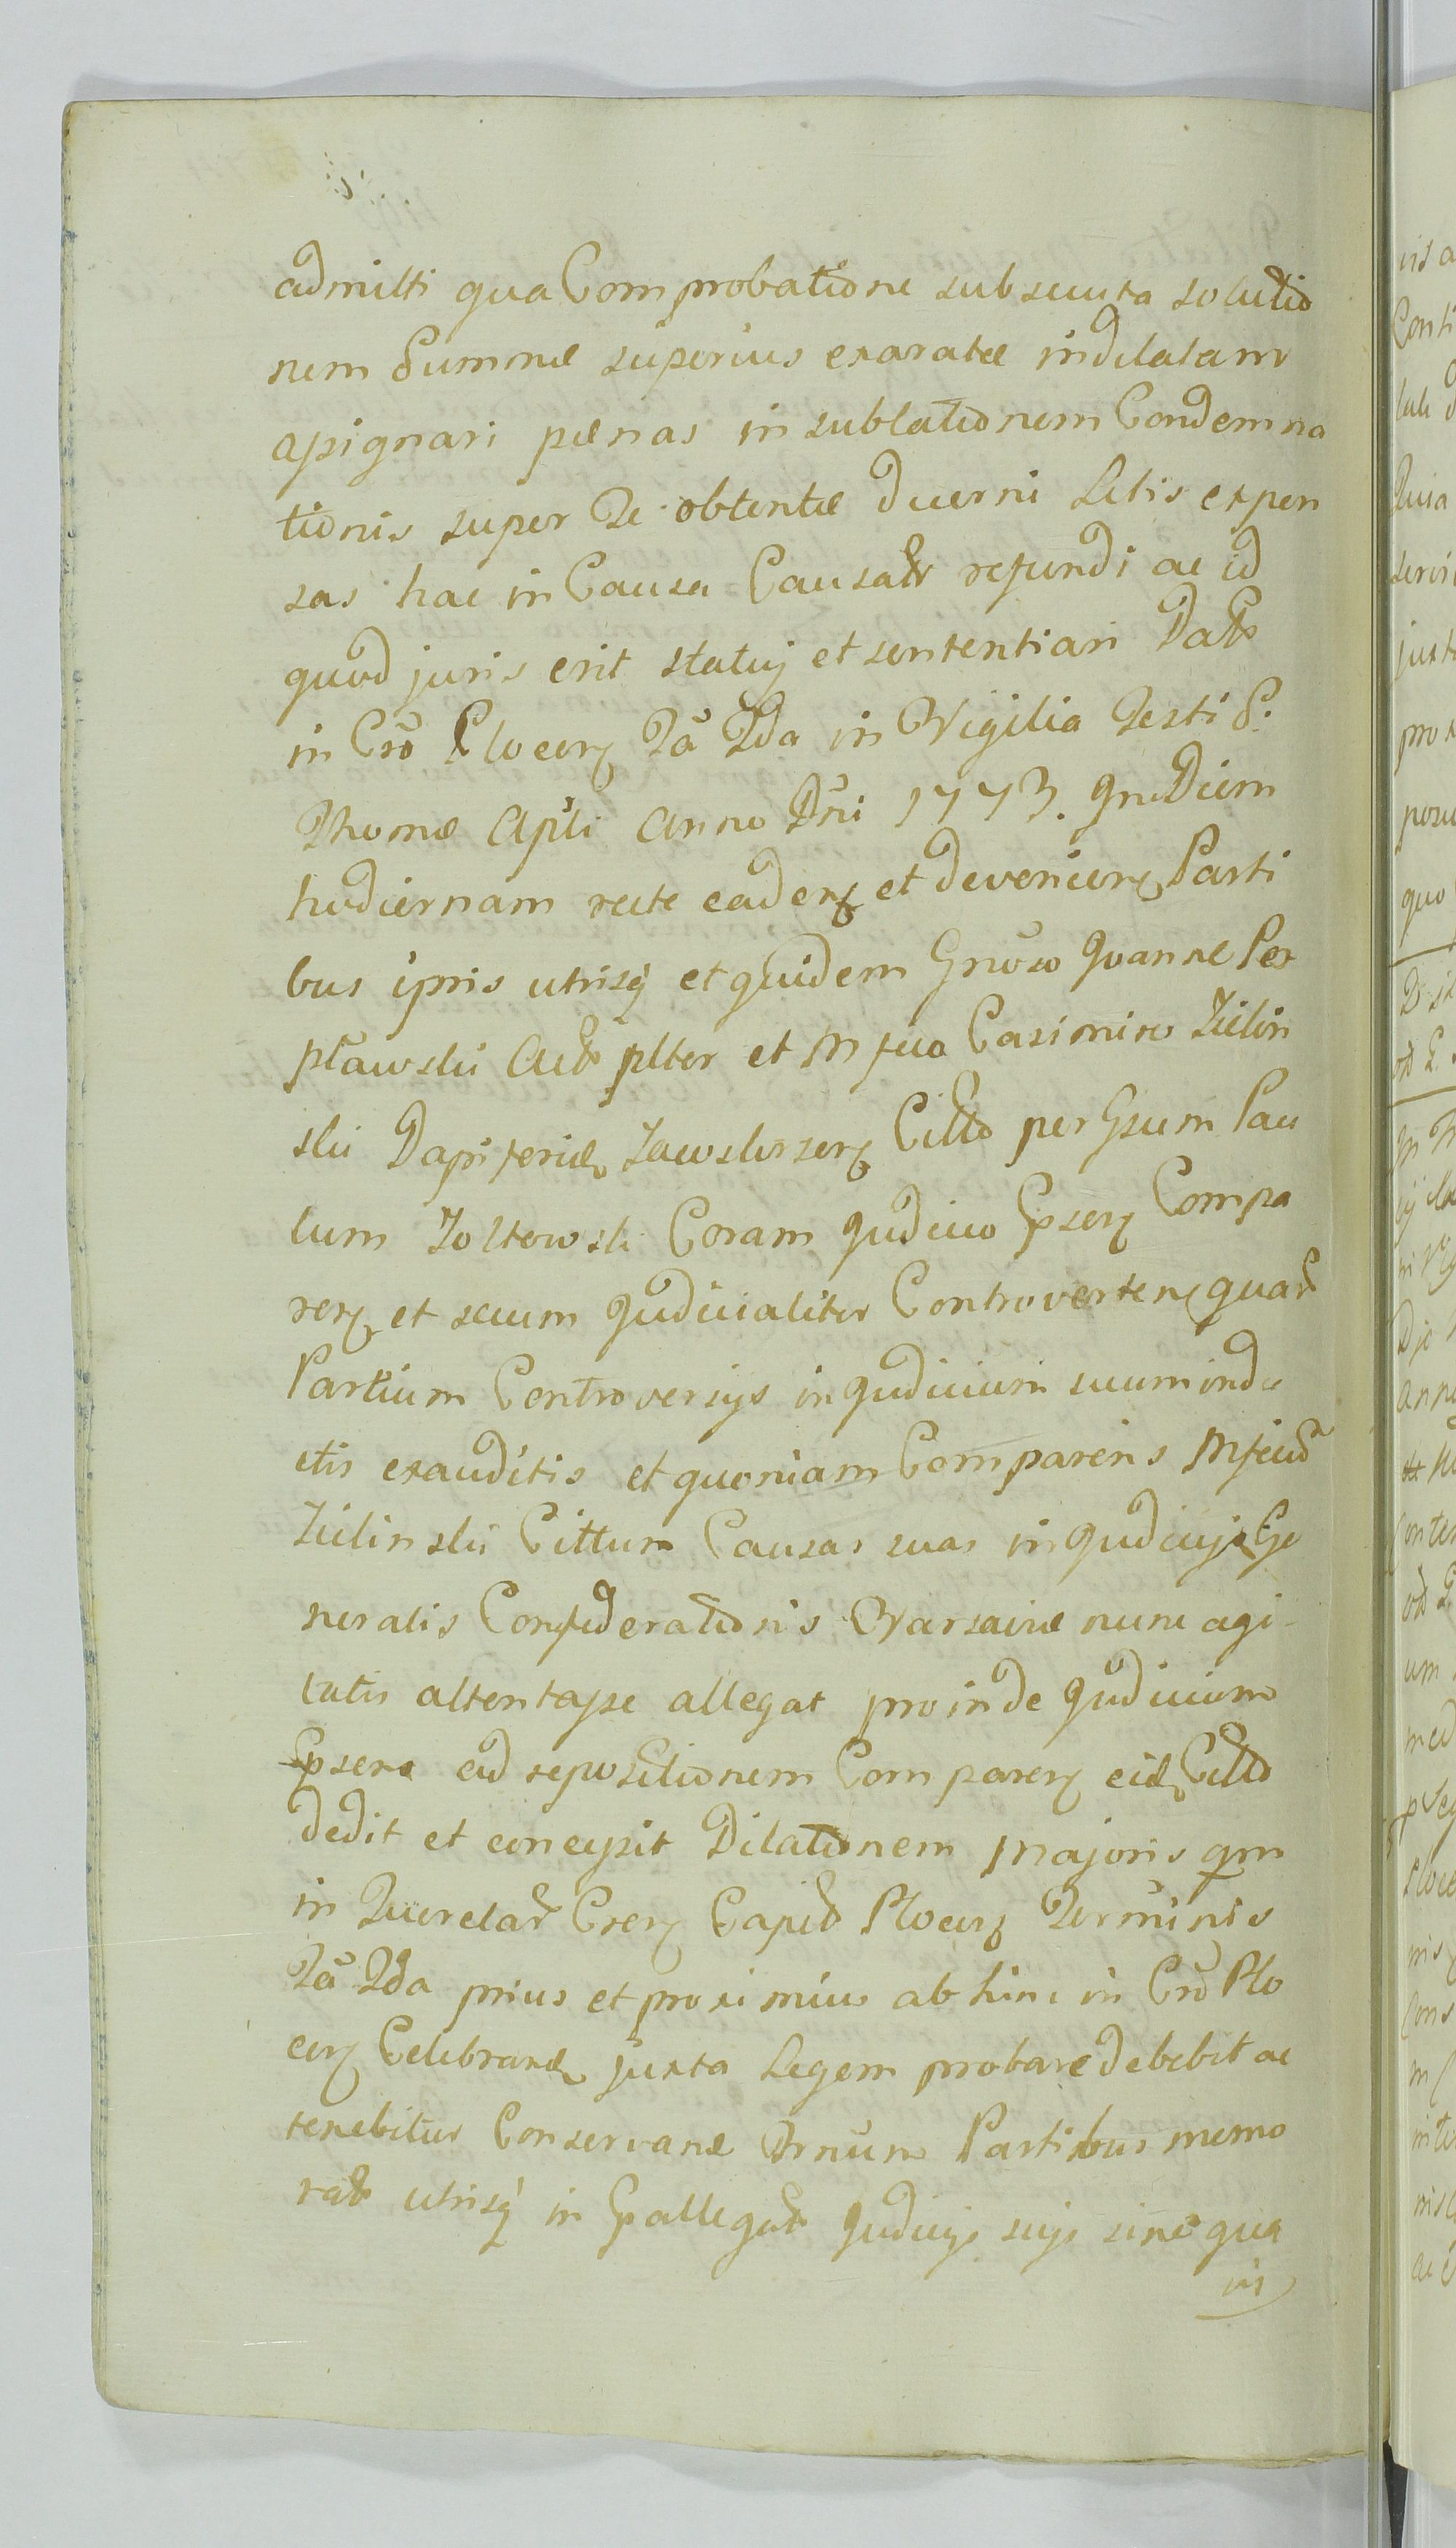 admitti qua Comprobatione subsecuta solutio
nem Summæ superius exaratæ indilatam
assignari pænas in sublationem Condemna
tionis super Se obtentæ decerni Litis expen
sas hac in Causa Causatt refundi ac id
quod juris erit statuj et sententiari Datt
in Crō Plocen Fā 2da in Vigilia Festi S.
Thomæ Apli Anno Dni 1773. In Diem
hodiernam recte caden et devenien Parti
bus ipsis utrisq et quidem Gnoso Joanne
ptawski Act plter et Mfico Casimiro Zielin
ski Dapifer Zawskrzen Citto per Gsum Pau
lum Zoltowski Coram Judicio psen Compa
ren et secum Judicialiter Controverten quar
Partium Controversys in Judicium suum indu
ctis exauditis et quoniam Comparens Mficus
Zielinski Cittum Causas suas in Judicijs Ge
neralis Confœderationis Varsaviæ nunc agi-
tatis attentasse allegat proinde Judicium
psens ad repositionem Comparen eid Citto
dedit et concessit Dilationem Majoris qm
in Querelar Cren Capit Plocen Terminis
Fā 2da prius et proximius ab hinc in Crō Plo
cen Celebran juxta Legem probare debebit ac
tenebitur Conservane Trnum Partibus memo
rat utrisq in pallegat Judicijs suis sine qua
vis